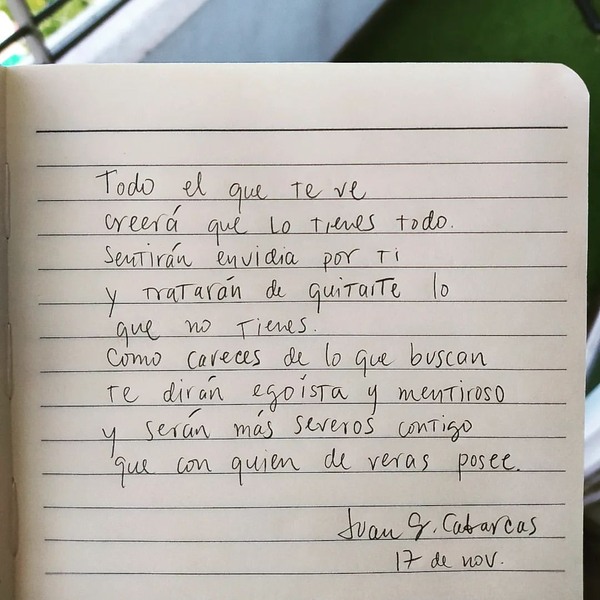 Todo el que te ve
creerá que lo tienes todo.
Sentirán envidia por ti
y tratarán de quitarte lo
que no tienes.
Como careces de lo que buscan
te dirán egoísta y mentiroso
y serán más severos contigo
que con quien de veras posee.
Juan G. Cabarcas
17 de nov.